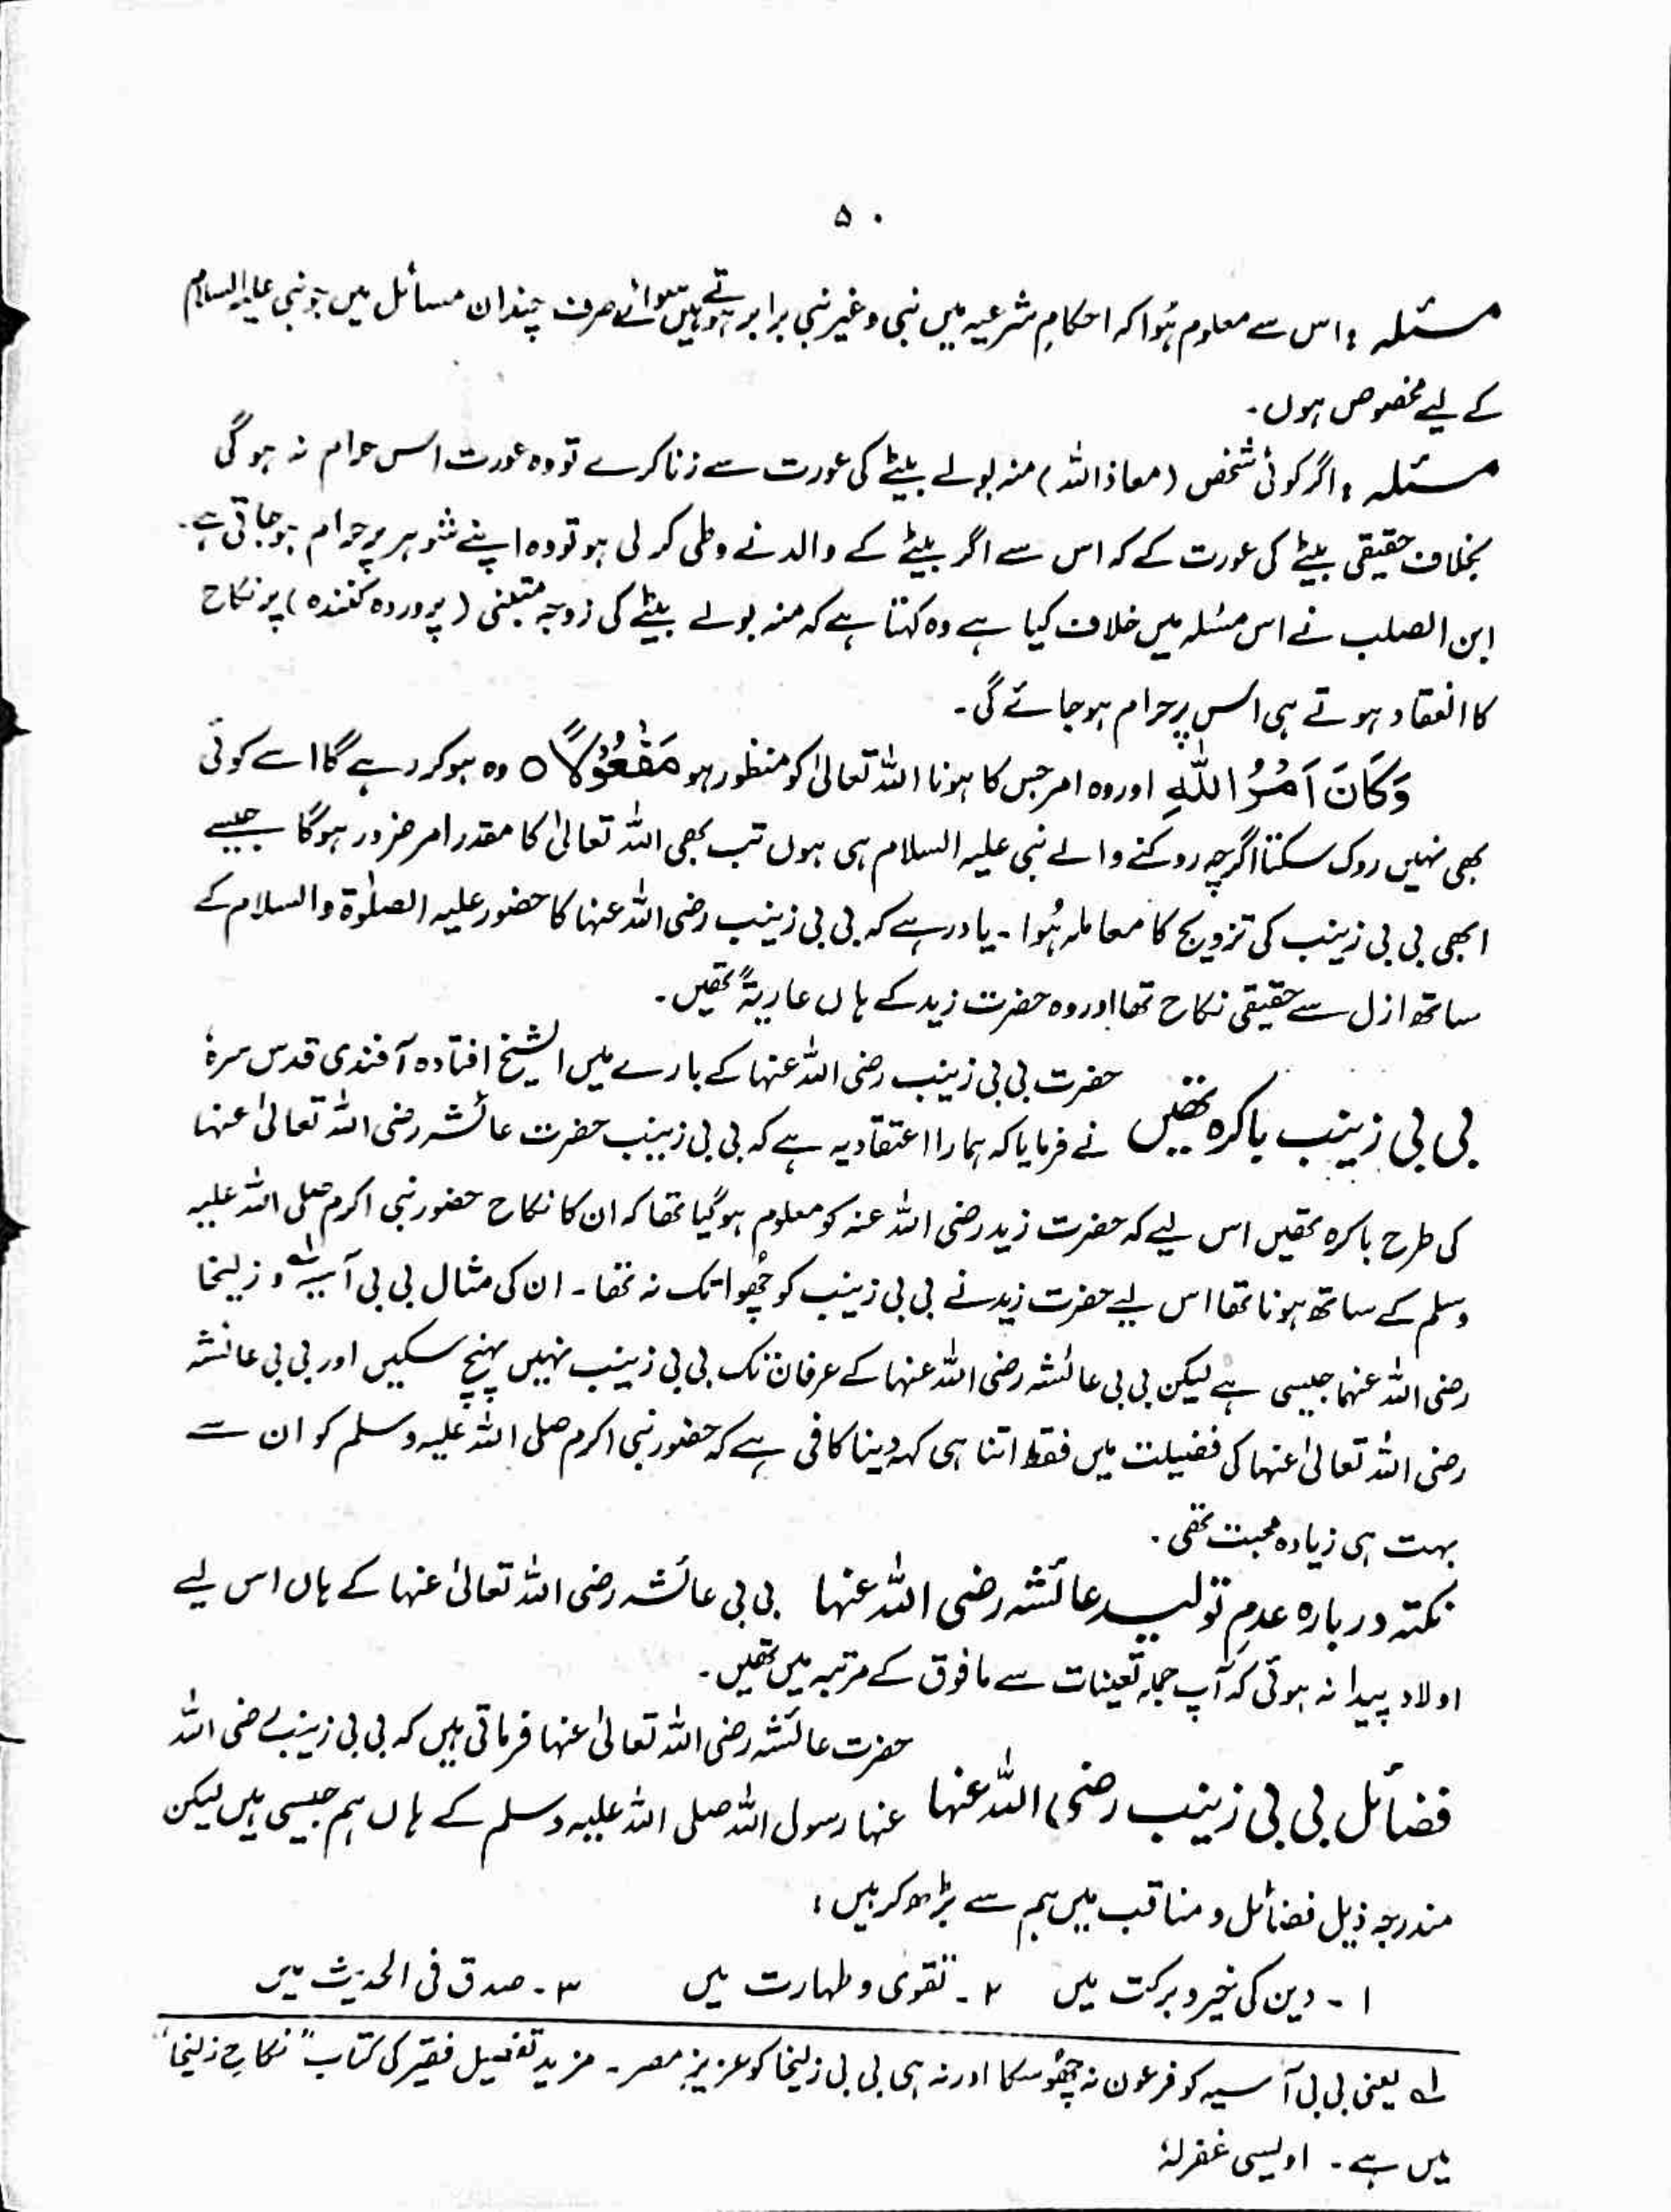 ۵۰
مسئلہ : اس سے معلوم ہُوا کہ احکامِ شرعیہ میں نبی و غیر نبی برابر ہوتے ہیں سوائے صرف چند ان مسائل میں جو نبی علیہ السلام
کے لیے مخصوص ہوں۔
مسئلہ : اگر کوئی شخص (معاذ اللہ) منہ بولے بیٹے کی عورت سے زنا کرے تو وہ عورت اس حرام نہ ہوگی
بخلاف حقیقی بیٹے کی عورت کے کہ اس سے اگر بیٹے کے والد نے وطی کر لی ہو تو وہ اپنے شوہر پر حرام ہو جاتی ہے۔
ابن الصلب نے اس مسئلہ میں خلاف کیا ہے وہ کہتا ہے کہ منہ بولے بیٹے کی زوجہ متبنی (پروردہ کنندہ) پر نکاح
کا انعقاد ہوتے ہی اس پر حرام ہو جائے گی۔
وَكَانَ اَمْرُ اللّٰهِ اور وہ امر جس کا ہونا اللہ تعالیٰ کو منظور ہو مَفْعُوْلًا ○ وہ ہو کر رہے گا اسے کوئی
بھی نہیں روک سکتا اگرچہ روکنے والے نبی علیہ السلام ہی ہوں تب بھی اللہ تعالیٰ کا مقدر امر ضرور ہوگا جیسے
ابھی بی بی زینب کی تزویج کا معاملہ ہُوا ۔ یاد رہے کہ بی بی زینب رضی اللہ عنہا کا حضور علیہ الصلوٰۃ والسلام کے
ساتھ ازل سے حقیقی نکاح تھا اور وہ حضرت زید کے ہاں عاریۃً تھیں۔
بی بی زینب باکرہ تھیں حضرت بی بی زینب رضی اللہ عنہا کے بارے میں الشیخ افتادہ آفندی قدس سرہٗ
نے فرمایا کہ ہمارا اعتقاد یہ ہے کہ بی بی زینب حضرت عائشہ رضی اللہ تعالیٰ عنہا
کی طرح باکرہ تھیں اس لیے کہ حضرت زید رضی اللہ عنہ کو معلوم ہو گیا تھا کہ ان کا نکاح حضور نبی اکرم صلی اللہ علیہ
وسلم کے ساتھ ہونا تھا اس لیے حضرت زید نے بی بی زینب کو چُھوا تک نہ تھا۔ ان کی مثال بی بی آسیہ لہ و زلیخا
رضی اللہ عنہما جیسی ہے لیکن بی بی عائشہ رضی اللہ عنہا کے عرفان تک بی بی زینب نہیں پہنچ سکیں اور بی بی عائشہ
رضی اللہ تعالیٰ عنہا کی فضیلت میں فقط اتنا ہی کہہ دینا کافی ہے کہ حضور نبی اکرم صلی اللہ علیہ وسلم کو ان سے
بہت ہی زیادہ محبت تھی۔
نکتہ دربارہ عدمِ تولید عائشہ رضی اللہ عنہا بی بی عائشہ رضی اللہ تعالیٰ عنہا کے ہاں اس لیے
اولاد پیدا نہ ہوئی کہ آپ جملہ تعینات سے مافوق کے مرتبہ میں تھیں۔
فضائل بی بی زینب رضی اللہ عنہا حضرت عائشہ رضی اللہ تعالیٰ عنہا فرماتی ہیں کہ بی بی زینب رضی اللہ
عنہا رسول اللہ صلی اللہ علیہ وسلم کے ہاں ہم جیسی ہیں لیکن
مندرجہ ذیل فضائل و مناقب میں ہم سے بڑھ کر ہیں :
۱ ۔ دین کی خیر و برکت میں ۲ ۔ تقوٰی و طہارت میں ۳ ۔ صدق فی الحدیث میں
لہ یعنی بی بی آسیہ کو فرعون نہ چُھو سکا اور نہ ہی بی بی زلیخا کو عزیزِ مصر۔ مزید تفصیل فقیر کی کتاب "نکاحِ زلیخا"
میں ہے۔ اویسی غفرلہٗ